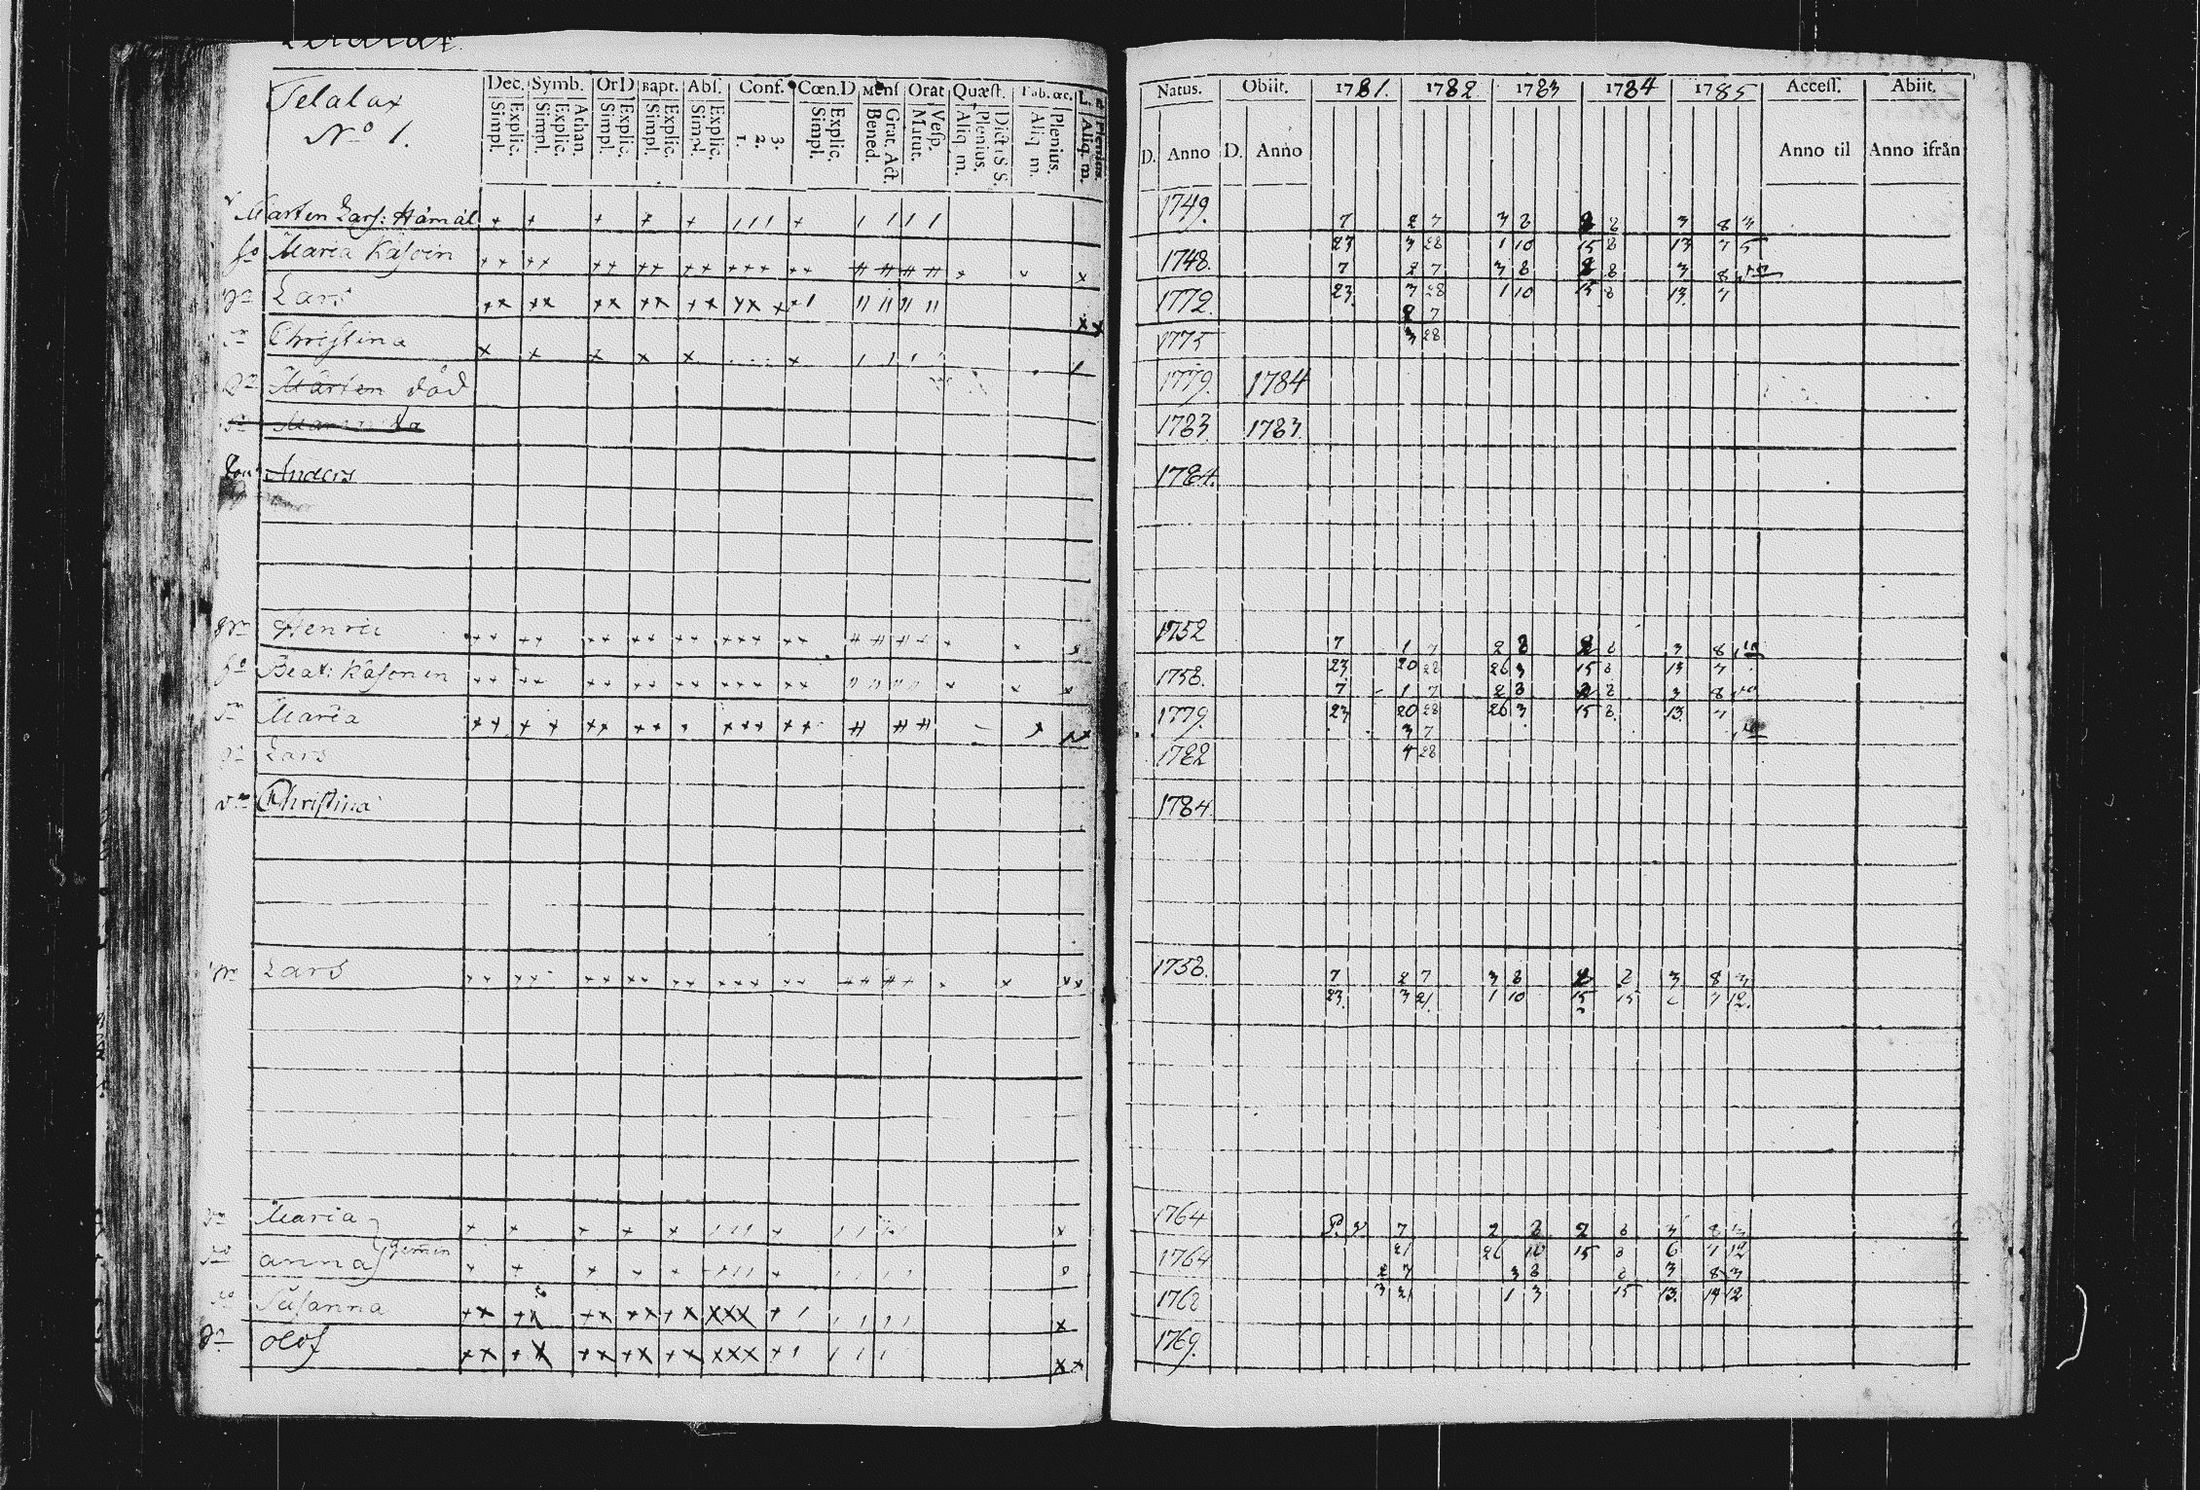 Telalax
No 1.
Dec. Symb. Or D Bapt. Abſ. Conf. Cœn.D Menſ Orat Quæſt. Tab.œc. L. n
Explic. Simpl. Athan. Explic. Simpl. Explic. Simpl. Explic. Simpl. Explic. Simpl. 3. 2. 1. Explic. Simpl. Grat. Act. Bened. Veſp. Matut. Dict. S S. Plenius. Aliq. m. Plenius. Aliq. m. Plenius. Aliq. m.
Mårten Larſ: Hämäl
ho Maria Käſoin
Lars
Christina
Mårten död
Maria
Anders
Henric
ho Beat: Käsonin
Maria
Lars
Christina
Lars
Maria
anna gemin
Susanna
olof
Natus. Obiit. 1781. 1782 1783 1784 1785 Acceſſ. Abiit.
D. Anno D. Anno Anno til Anno ifrån
1749. 7 2 7 3 8 2 8 3 8 3
23 3 28 1 10 15 8 13 7 5
1748. 7 2 7 3 8 2 8 3 8
23. 3 28 1 10 15 8 13. 7
1772. 2 7
3 28
1775
1779. 1784
1783 1783
1784.
1752 7 1 7 2 8 2 8 3 8
23 20 28 26 3 15 8 13 7
1758. 7 1 7 2 8 2 8 3 8
23 20 28 26 3 15 8. 13. 7
1779. 3 7
4 28
1782
1784.
1758. 7 2 7 3 8 2 8 3 8 3
23. 3 21. 1 10 15 15 7 12.
1764 P. v. 7 2 8 2 8 3 8 3
21 26 10 15 8 6 7 12
1764 2 7 3 8 8 3 8 3
3 21 1 3 15 13. 14 12
1762
1769.